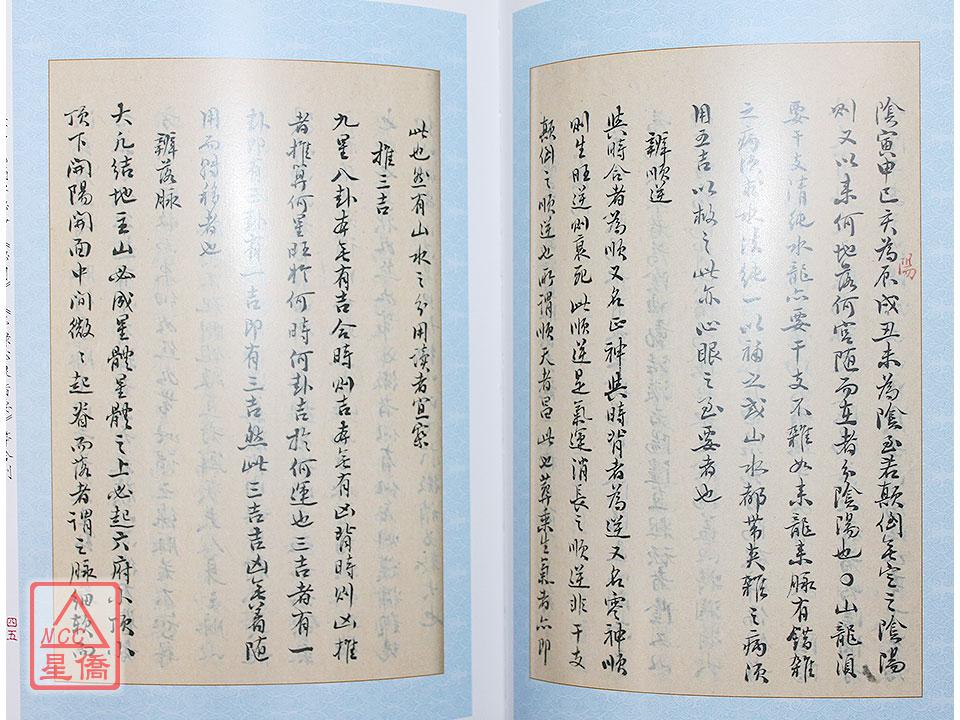 陰寅申巳亥為辰戌丑未為陰至若顛倒無定之陰陽
陽
則又以來何地落何宮随而在者分陰陽也〇山龍須
要干支清純水龍亦要干支不雜如來龍来脉有錯雜
之病須求水清純一以補之或山水都带夹雜之病須
用五吉以救之此亦心眼之至要者也
辨順逆
與時合者為順又名正神與時背者為逆又名零神順
則生旺逆則衰死此順逆是氣運消長之順逆非干支
顛倒之順逆也所謂順天者昌此也葬乘生氣者亦即
此也然有山水之分用讀者宜察
推三吉
九星八卦本無有吉合時則吉本無有凶背時則凶推
者推算何星旺於何時何卦吉於何運也三吉者有一
卦即有三卦有一吉即有三吉然此三吉吉凶無着随
用而轉移者也
辨落脉
大凡結地主山必成星體星體之上必起六府小頂小
頂下開陽開面中间微之起脊而落者謂之脉细软而
四五
NCC
星僑